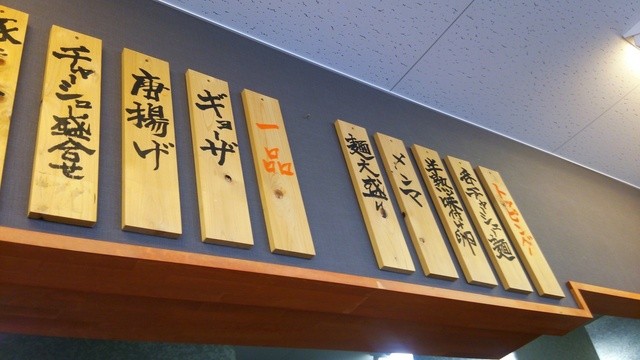 トッピング
各チャーシュー麺
半熟味付卵
メンマ
麺大盛り
一品
ギョーザ
唐揚げ
チャーシュー盛合せ